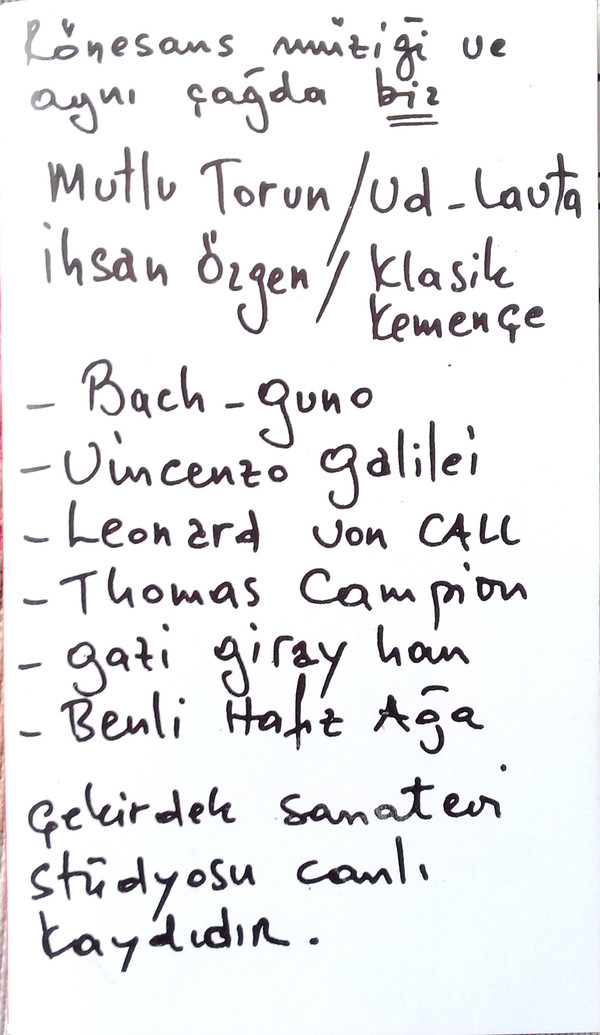 Rönesans müziği ve
aynı çağda biz
Mutlu Torun / Ud - Lavta
İhsan Özgen / Klasik
Kemençe
- Bach - guno
- Vincenzo galilei
- Leonard von CALL
- Thomas Campion
- gazi giray han
- Benli Hafız Ağa
Çekirdek sanatevi
stüdyosu canlı
kaydıdır.